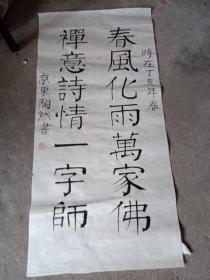 春風化雨萬家佛
時在丁亥年春
禪意詩情一字師
京東陶然書